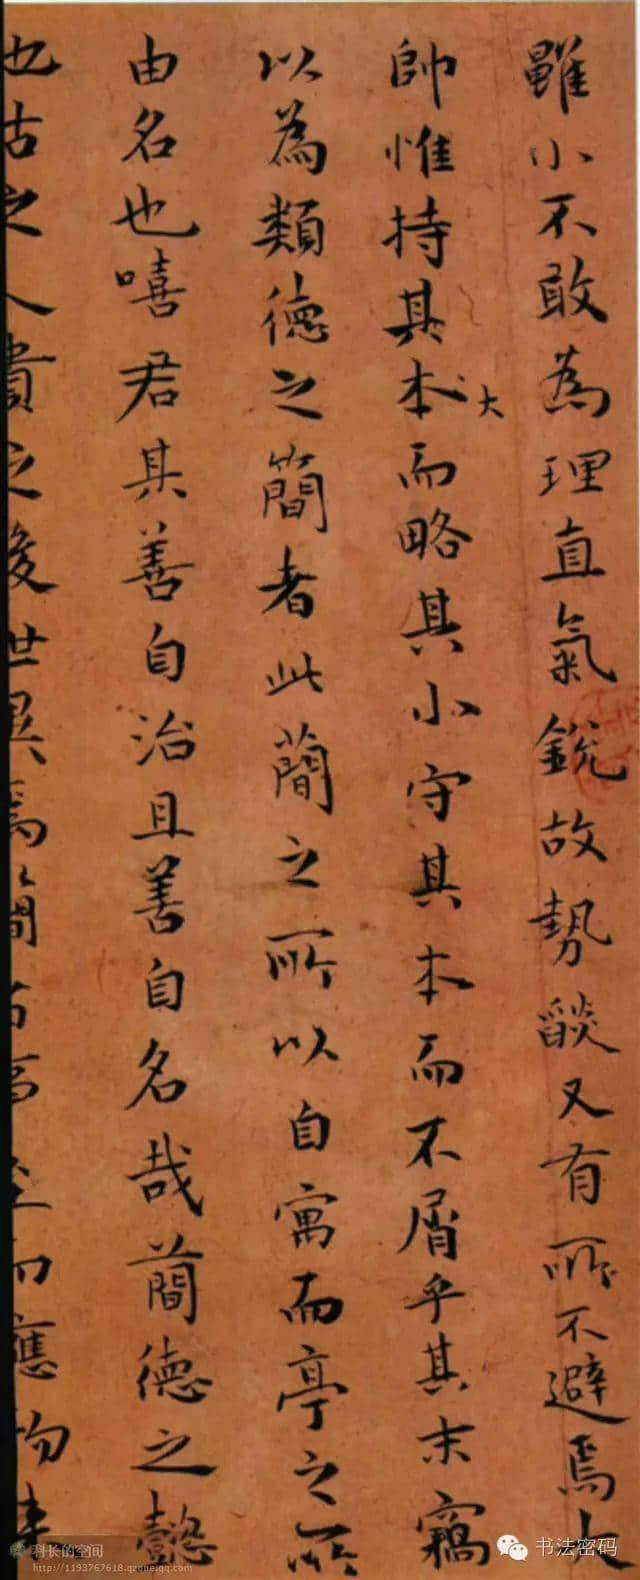 雖小不敢為理直氣銳故勢燄又有所不避焉大
帥惟持其本而略其小守其本而不屑乎其末竊
大
以為類德之簡者此蕳之所以自寓而亭之所
由名也嘻君其善自治且善自名哉蕳德之懿
也古之人貴之後世異焉簡
而應物
科长的空间
http://1193767618.qzone.qq.com
书法密码